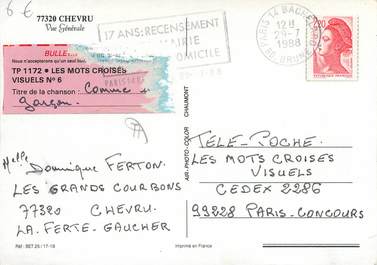 6 €
77320 CHEVRU
Vue Générale
17 ANS: RECENSEMENT
MAIRIE
DOMICILE
PARIS 14
12H
29-7
1988
R. BRUNE
2,20
BULLE
Nous n'accepterons qu'un seul
TP 1172 • LES MOTS CROISÉS
VISUELS N° 6
Titre de la chanson : Comme un
garçon
AIR-PHOTO-COLOR CHAUMONT
Melle Dominique FERTON.
LES GRANDS COURBONS
77320 CHEVRU
LA-FERTE-GAUCHER
TELE-POCHE.
LES MOTS CROISES
VISUELS
CEDEX 2286
99228 PARIS-CONCOURS
Imprimé en France